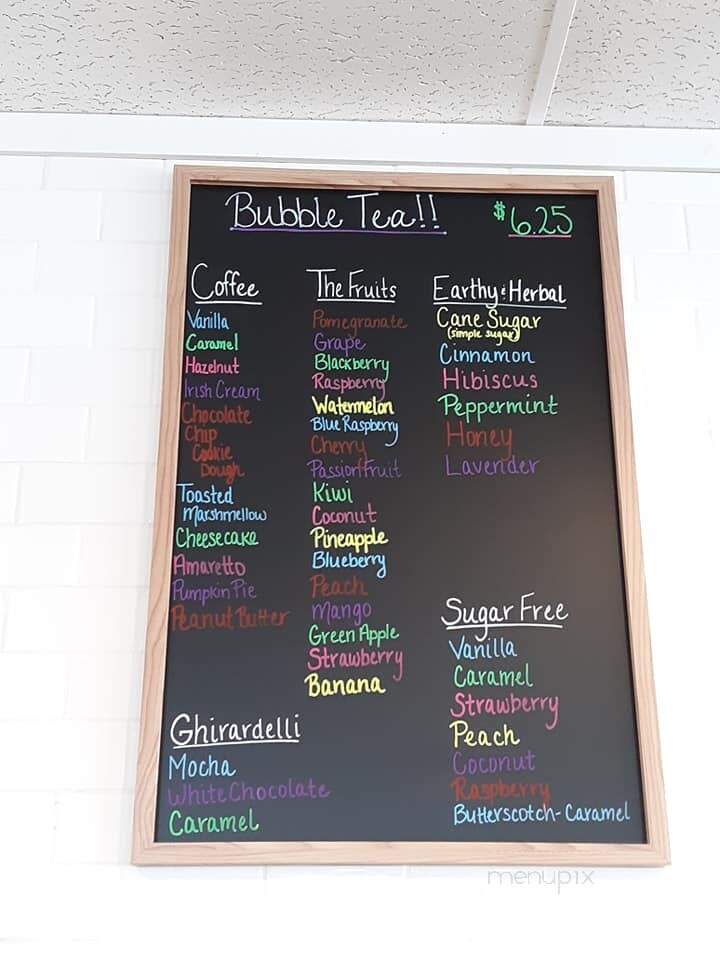 Bubble Tea!!
$6.25
Coffee
Vanilla
Caramel
Hazelnut
Irish Cream
Chocolate
Chip
Cookie
Dough
Toasted
Marshmellow
Cheesecake
Amaretto
Pumpkin Pie
Peanut Butter
The Fruits
Pomegranate
Grape
Blackberry
Raspberry
Watermelon
Blue Raspberry
Cherry
Passionfruit
Kiwi
Coconut
Pineapple
Blueberry
Peach
Mango
Green Apple
Strawberry
Banana
Earthy & Herbal
Cane Sugar
(simple sugar)
Cinnamon
Hibiscus
Peppermint
Honey
Lavender
Ghirardelli
Mocha
White Chocolate
Caramel
Sugar Free
Vanilla
Caramel
Strawberry
Peach
Coconut
Raspberry
Butterscotch-Caramel
menupix